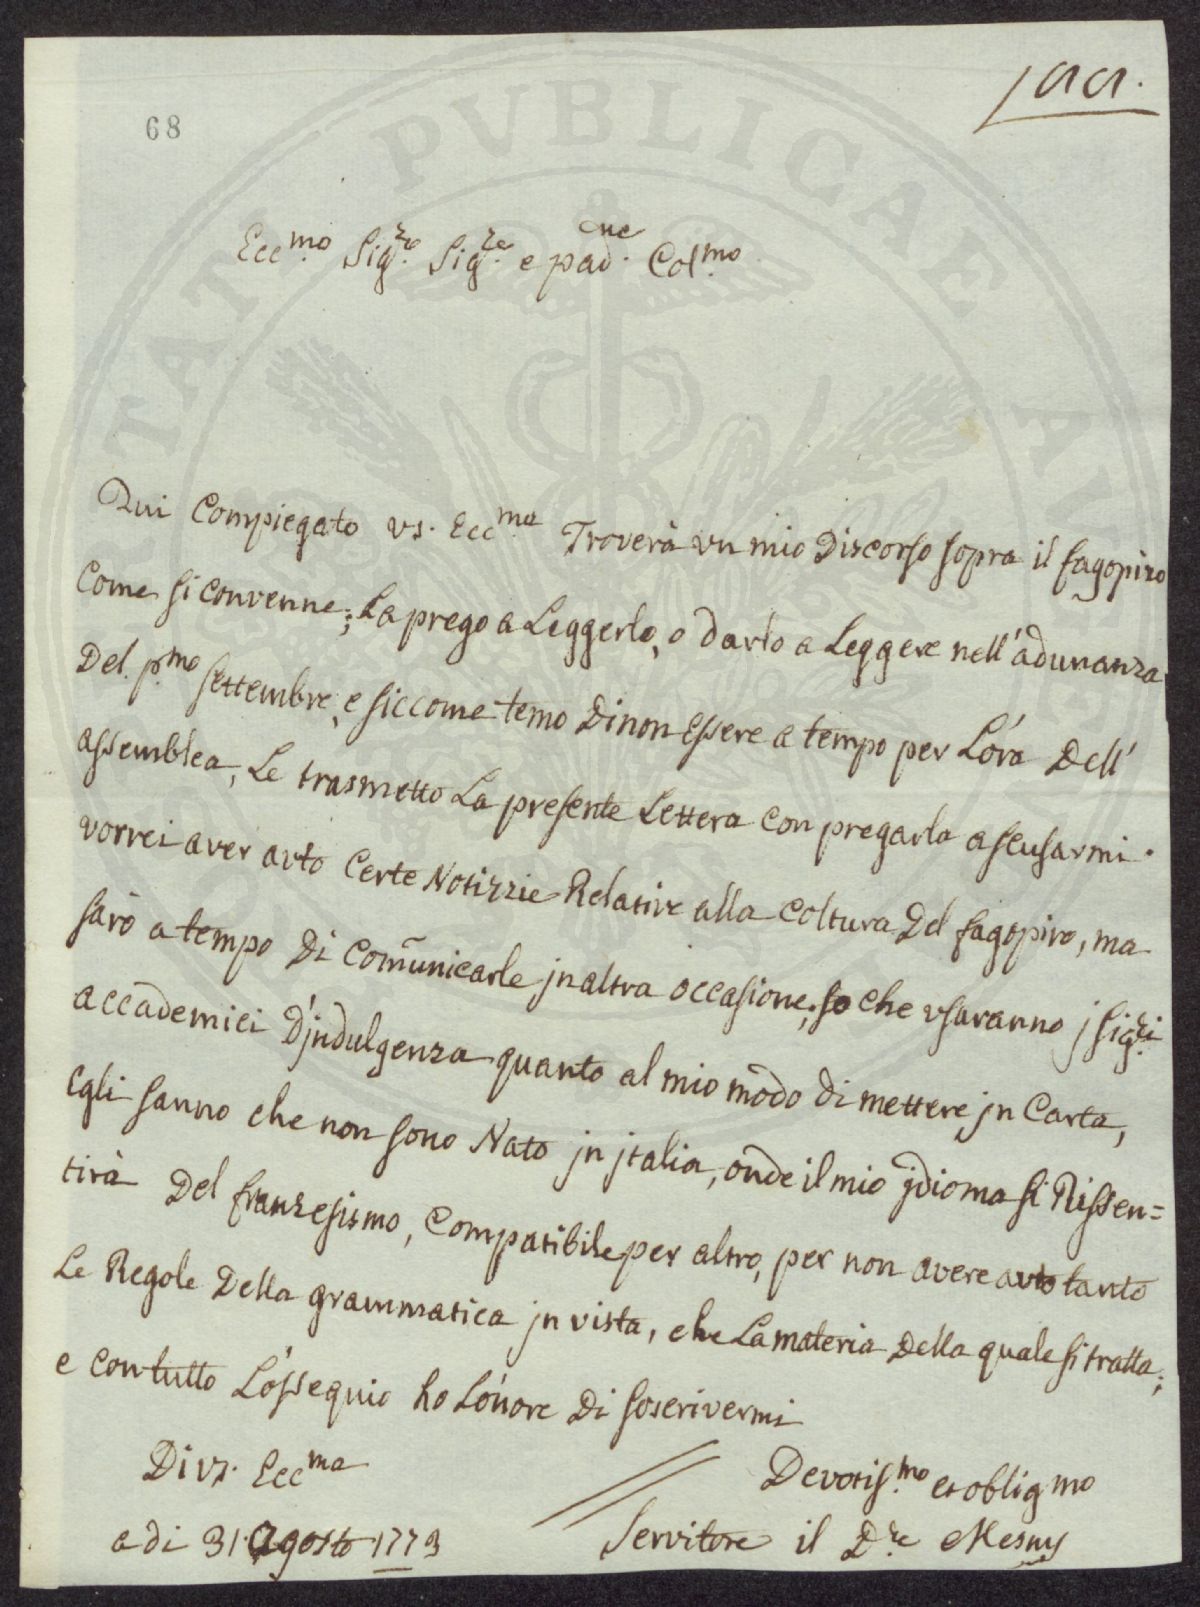 68
Ecc.mo Sig.re Sig.re e pad.ne Col.mo
Qui Compiegato vs. Ecc.ma Troverà vn mio Discorso sopra il fagopiro
Come si convenne; La prego a Leggerlo, o darlo a Leggere nell'adunanza
Del p.mo settembre, e siccome temo Di non Essere a tempo per L'ora Dell'
assemblea, Le trasmetto La presente Lettera con pregarla a scusarmi.
vorrei aver avto Certe Notizzie Relative alla Coltura Del fagopiro, ma
sarò a tempo Di Comũnicarle jn altra occasione; so che vsaranno j sig.ri
accademici D'jndulgenza quanto al mio modo di mettere jn Carta,
Egli sanno che non sono Nato jn jtalia, onde il mio jdioma si Rissen=
tirà Del franzesismo, Compatibile per altro, per non avere avto tanto
Le Regole Della grammatica jn vista, che La materia Della quale si tratta;
e con tutto L'ossequio ho L'onore Di soscrivermi
Di vs. Ecc.ma
Devotis.mo et oblig.mo
a di 31. Agosto 1773
Servitore il D.re Mesny
PUBLICAE